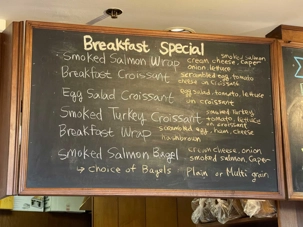 Breakfast Special
Smoked Salmon Wrap
smoked salmon
cream cheese, caper
onion lettuce
Breakfast Croissant
scrambled egg, tomato
cheese in croissant
Egg Salad Croissant
egg salad, tomato, lettuce
in croissant
Smoked Turkey Croissant
smoked turkey
tomato, lettuce
in croissant
Breakfast Wrap
scrambled egg, ham, cheese
hashbrown
Smoked Salmon Bagel
cream cheese, onion
smoked salmon, Caper
↳ choice of Bagels
Plain or Multi grain